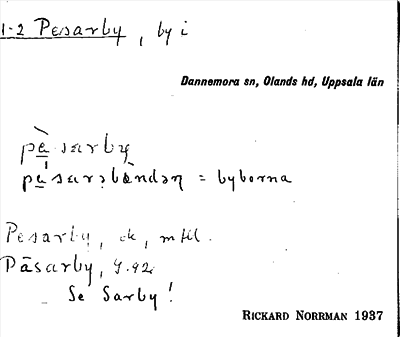 1-2 Pesarby, by i
Dannemora sn, Olands hd, Uppsala län
pè̱sarby
pè̱sarəbòndəŋ = byborna
Pesarby, ek, mtl.
Päsarby, G.92
Se Sarby!
RICKARD NORRMAN 1937